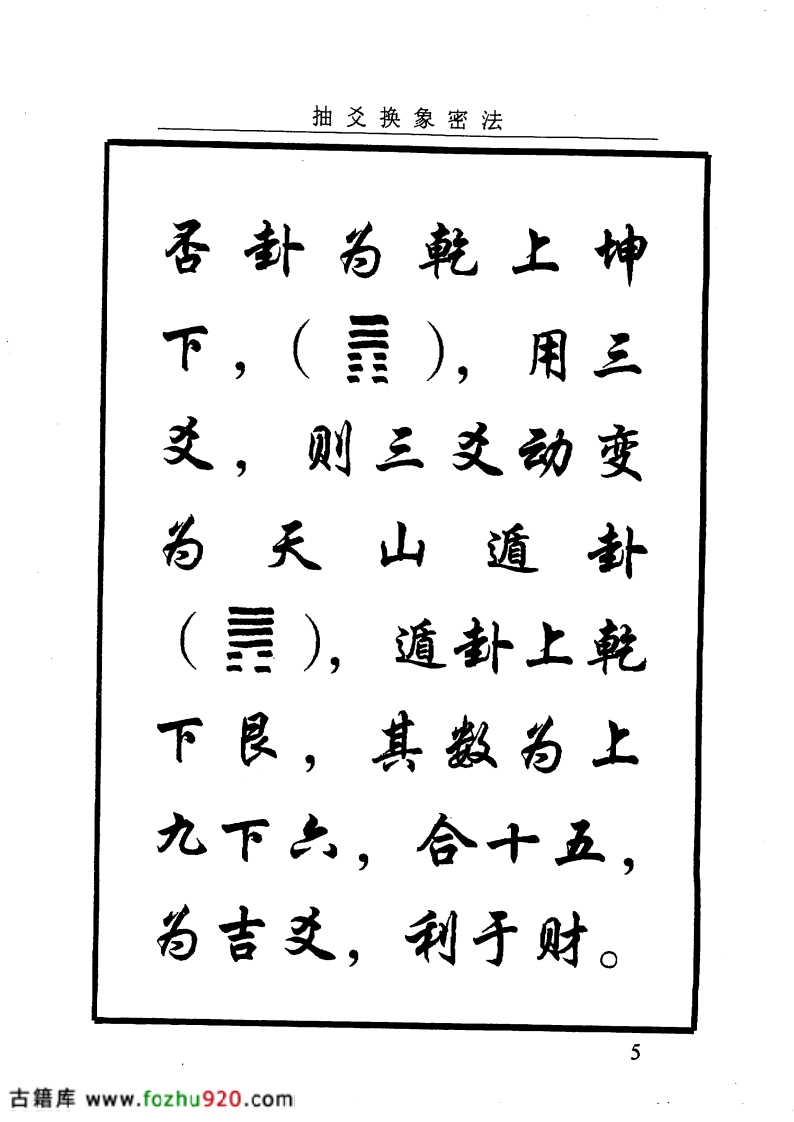 抽爻换象密法
否卦为乾上坤
下，（䷋），用三
爻，则三爻动变
为天山遁卦
（䷠），遁卦上乾
下艮，其数为上
九下六，合十五，
为吉爻，利于财。
5
古籍库 www.fozhu920.com